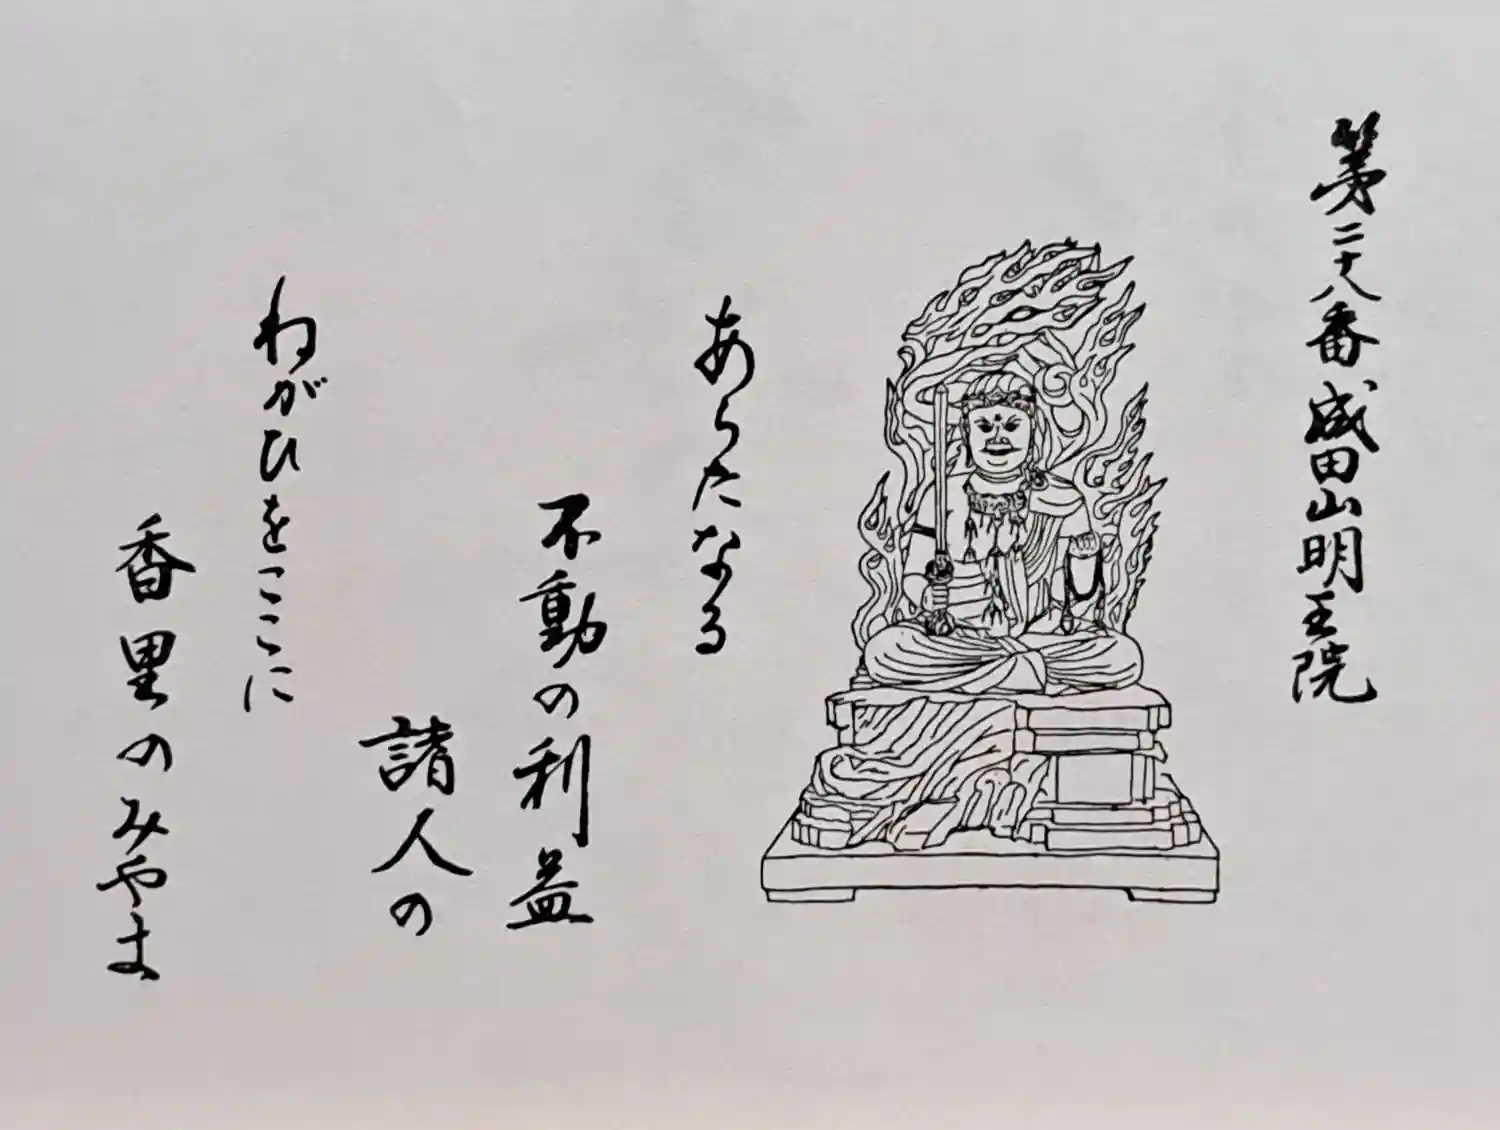 第二十八番成田山明王院
あらたなる
不動の利益
諸人の
ねがひをここに
香里のみやま